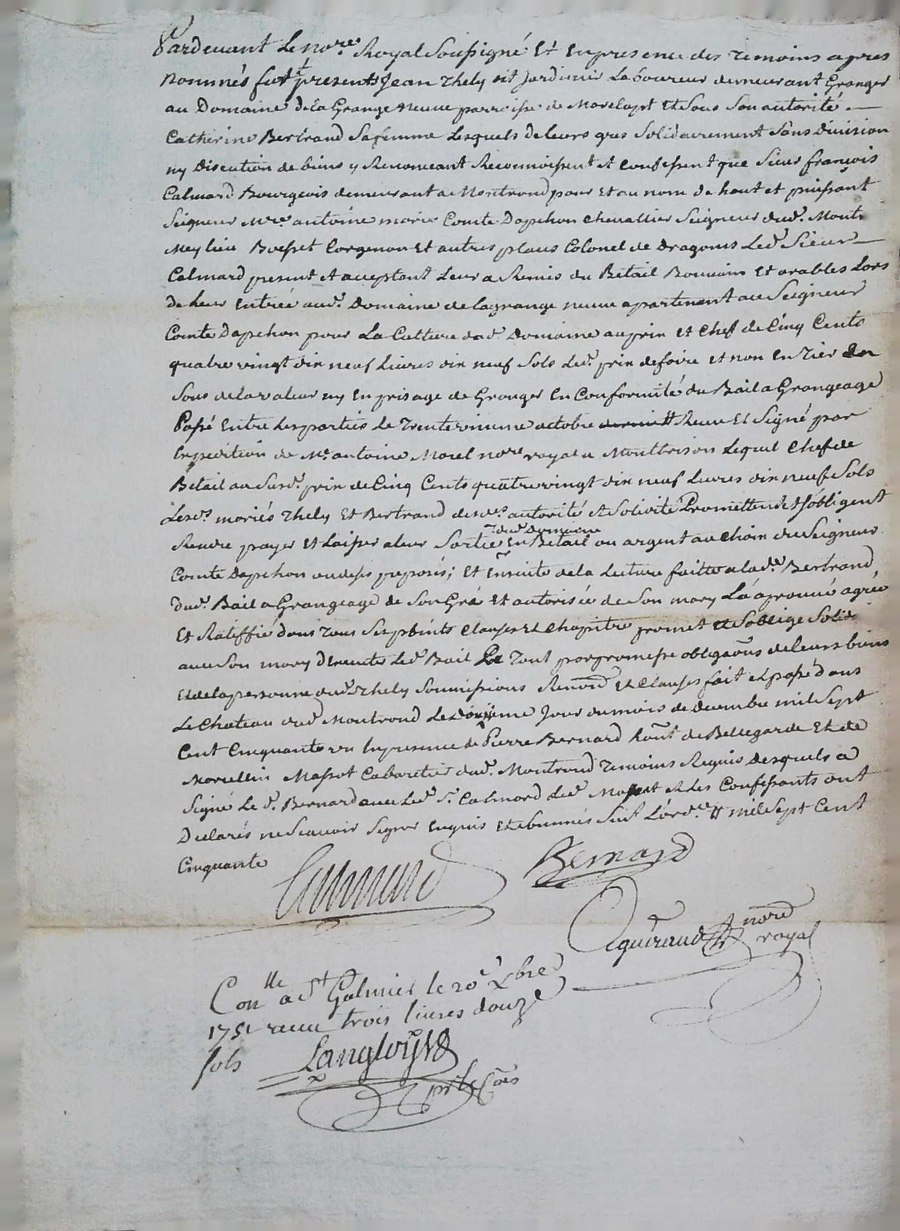 Pardevant Le no.re Royal Soussigné Et En presence des temoins apres
Nommés fut presents Jean Thely dit Jardinier Laboureur demeurant Granger
au Domaine de la Grange neuve parroisse de Et Sous Son autorité
Catherine Bertrand Sa femme Lesquels de leurs gres Solidairement Sans division
ny Discution de biens y Renonceant Reconnoissent et confessent que Sieur françois
Calmard Bourgeois demeurant a Montrond pour Et au nom de haut et puissant
Seigneur M.re antoine marie Comte Dapchon Chevallier Seigneur dud. Mont-
Meylieu Boisset Corgenon Et autres places Colonel de Dragons Led. Sieur
Calmard present et acceptant Leur a Remis du Betail Roumain Et arables Lors
de Leur Entrée aud. Domaine de Lagrange neuve apartenant au Seigneur
Comte Dapchon pour La Culture dud. Domaine au prin Et Chef de Cinq Cents
quatre vingt din neuf Livres din neuf Sols Led. prin de foire et non En Tier En
Sous de la valeur ny En prisage de Granger En Conformité du Bail a Grangeage
Passé Entre Les parties Le Trente unieme octobre Reçue Et Signé par
Expedition de Me. antoine Morel no.re royal a Montbrison Lequel Chef de
Betail au Susd. prin de Cinq Cents quatre vingt din neuf Livres din neuf Sols
Lesd. mariés Thely Et Bertrand de autorité et Solidité Promettent et s'obligent
Rendre payer Et Laisser a leur Sortie dud. Domaine En Betail ou argent au Choin du Seigneur
Comte Dapchon ou des preposés; Et Ensuite de la Lecture faitte a lad. Bertrand
dud. Bail a Grangeage de Son Gré Et autorisée de Son mary La aprouvé agrée
Et Ratiffié dans Tous Ses points Clauses Et Chapitre promet et s'oblige Solid.
avec Son mary D'executer Led. Bail Le Tout par promesse obligaons de Leurs biens
Et de la personne dud. Thely Soumissions Renond. Et Clauses fait Et passé dans
Le Chateau dud. Montrond Le douzieme Jour du mois de decembre mil Sept
Cent Cinquante un En presence de Pierre Bernard de Bellegarde Et de
Marcellin Massot Cabaretier dud. Montrond Temoins Requis desquels a
Signé Le d. Bernard avec Led. Sr. Calmard Led. Massot et Les Confessants ont
Declarés ne Scavoir Signer Enquis Et Sommés Suit L'ord.ce mil Sept Cent
Cinquante
Calmard
Bernard
guéraud
nore
royal
Conlle a St Galmier le 20e Xbre
1751 reçu trois livres douze
sols
Langloys